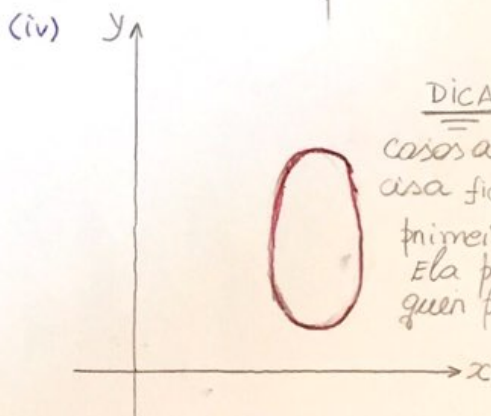 (iv) y
DICA
casos a
cisa fic
primei
Ela p
quer p
x